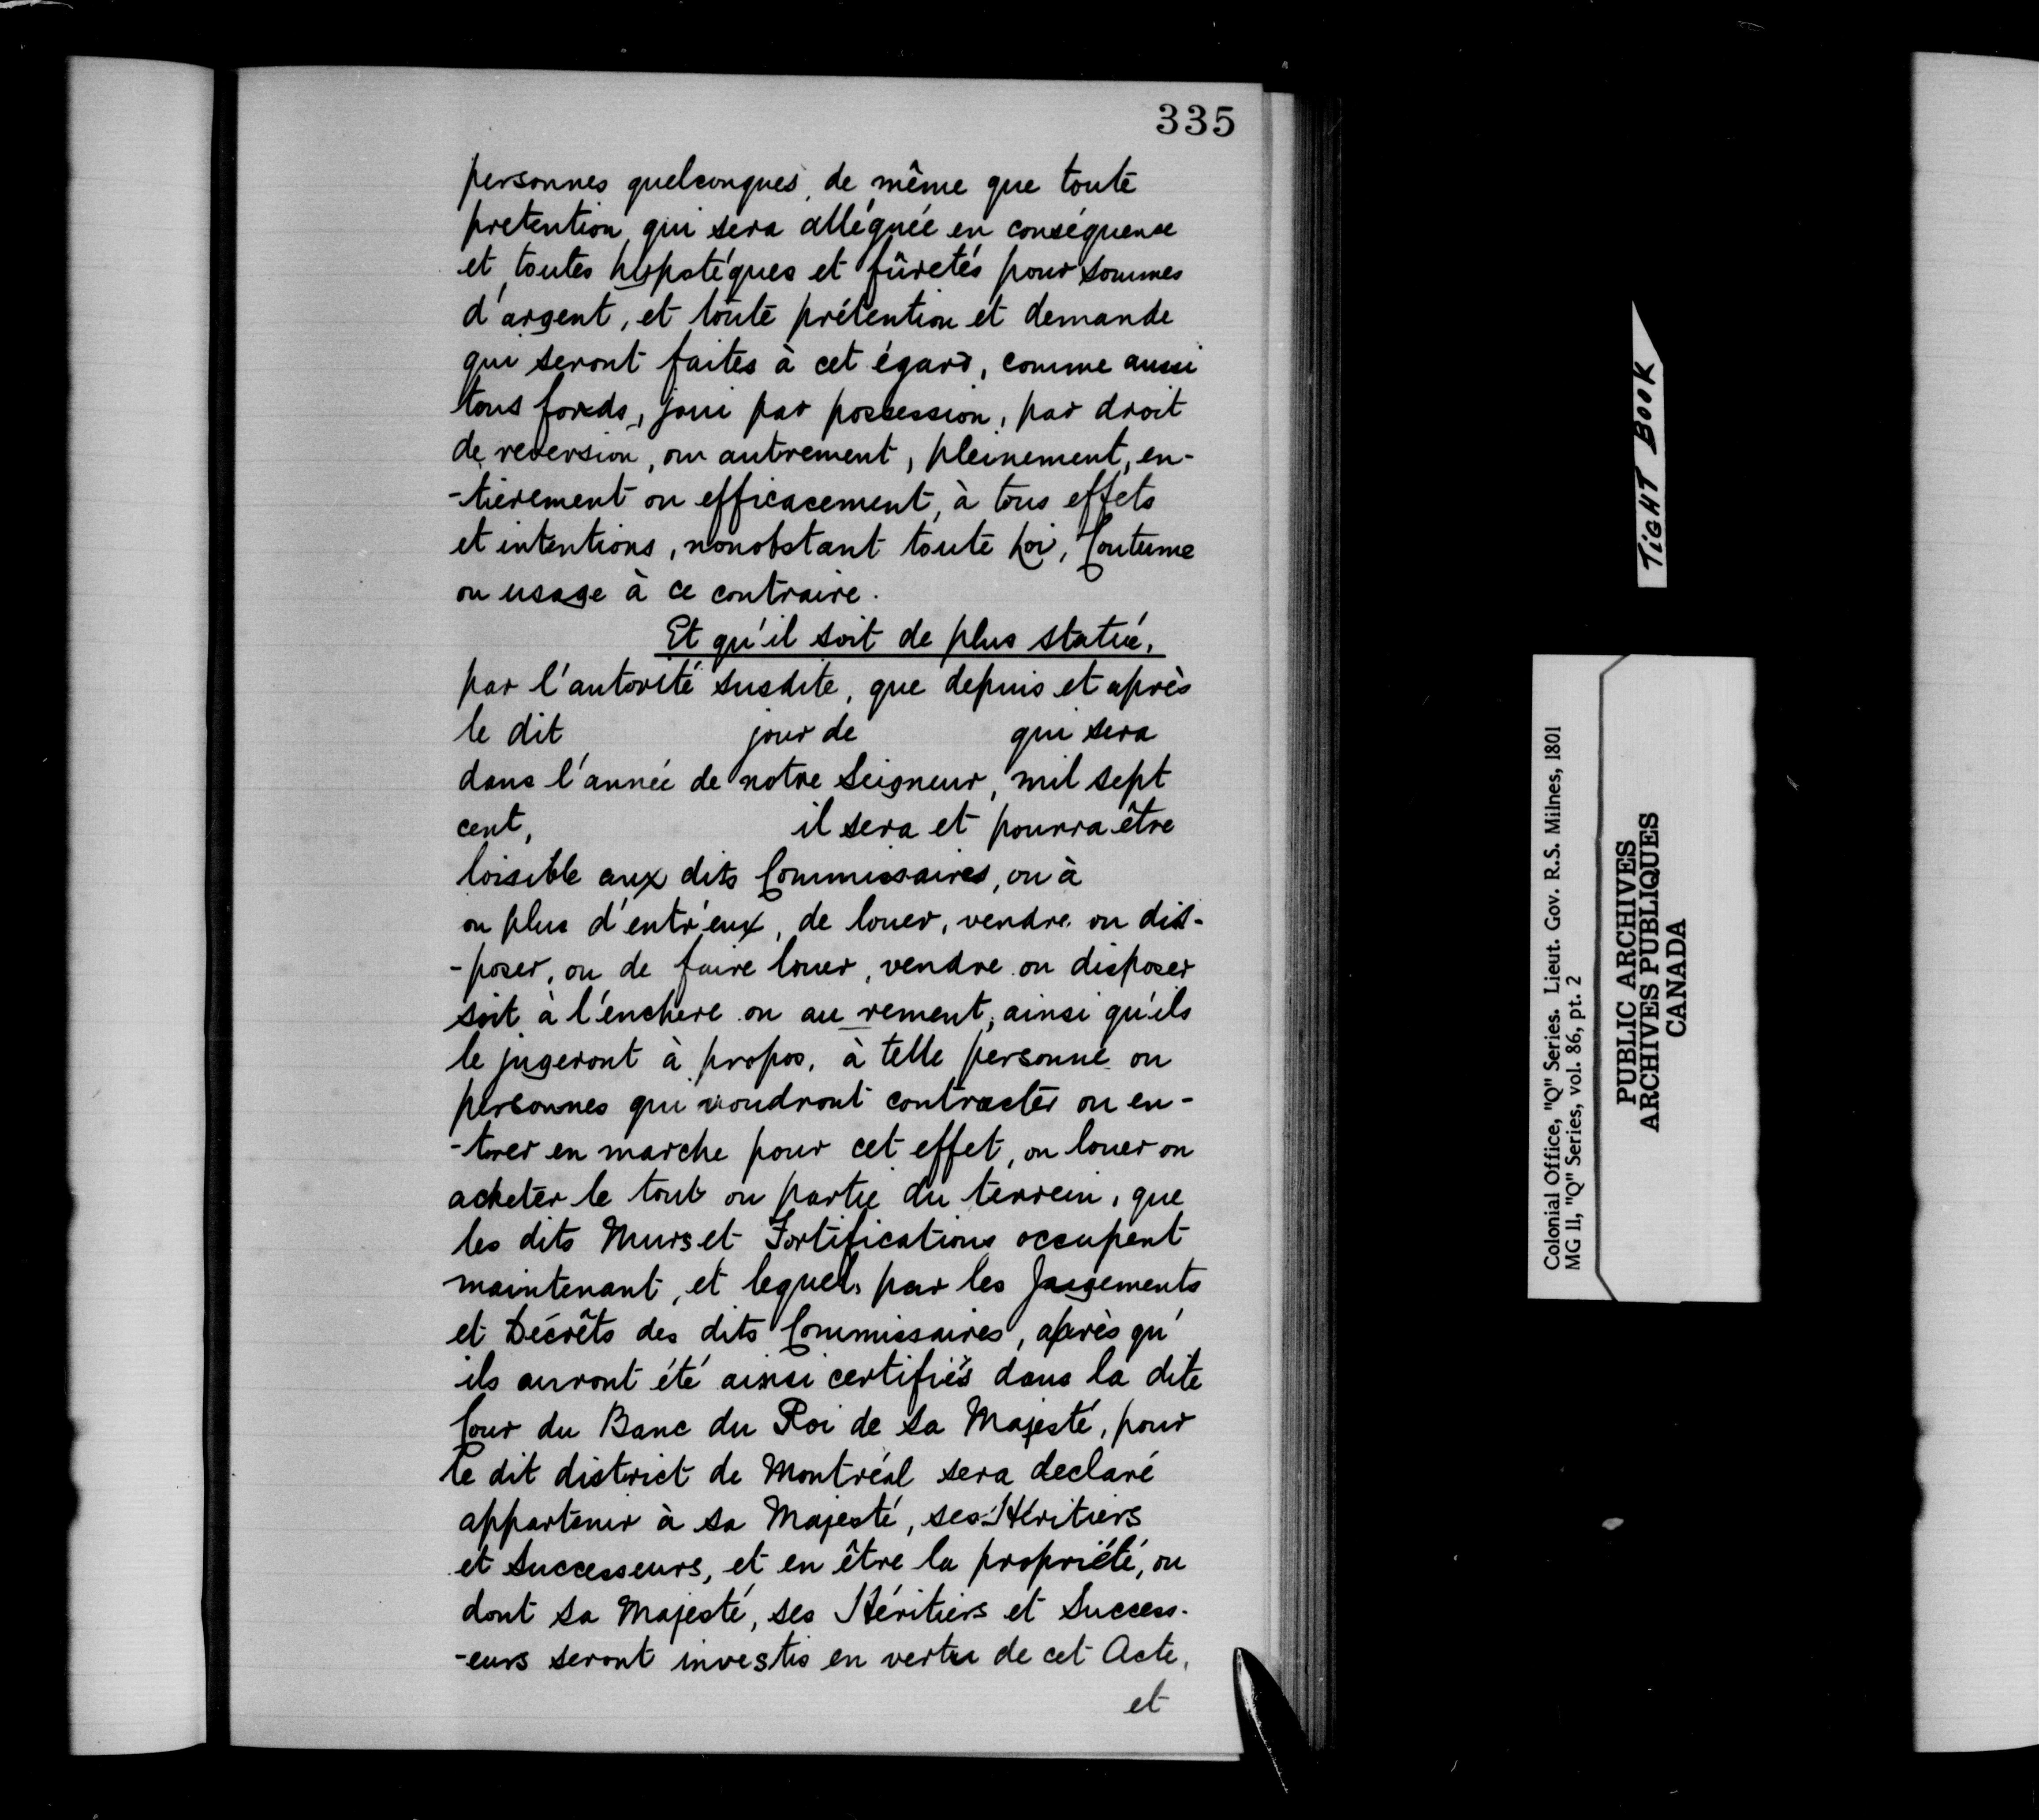 335
personnes quelconques, de même que toute
pretention, qui sera alléguée en conséquence
et toutes hypotéques et fûretés pour sommes
d'argent, et toute prétention et demande
qui seront faites à cet égard, comme aussi
tous fonds, joui par possession, par droit
de reversion, ou autrement, pleinement, en-
-tièrement ou efficacement, à tous effets
et intentions, nonobstant toute Loi, Coutume
ou usage à ce contraire.
Et qu'il soit de plus statué,
par l'autorité susdite, que depuis et après
le dit jour de qui sera
dans l'année de notre Seigneur, mil sept
cent, il sera et pourra être
loisible aux dits Commissaires, ou à
ou plus d'entr'eux, de louer, vendre ou dis-
-poser, ou de faire louer, vendre ou disposer
soit à l'enchere ou au rement, ainsi qu'ils
le jugeront à propos, à telle personne ou
personnes qui voudront contracter ou en-
-trer en marche pour cet effet, ou louer ou
acheter le tout ou partie du terrein, que
les dits Murs et Fortifications occupent
maintenant, et lequel, par les Jugements
et Décrêts des dits Commissaires, après qu'
ils auront été ainsi certifiés dans la dite
Cour du Banc du Roi de sa Majesté, pour
le dit district de Montréal sera declaré
appartenir à sa Majesté, ses Héritiers
et Successeurs, et en être la propriété, ou
dont sa Majesté, ses Héritiers et Success-
-eurs seront investis en vertu de cet Acte,
et
TIGHT BOOK
Colonial Office, "Q" Series. Lieut. Gov. R.S. Milnes, 1801
MG 11, "Q" Series, vol. 86, pt. 2
PUBLIC ARCHIVES
ARCHIVES PUBLIQUES
CANADA